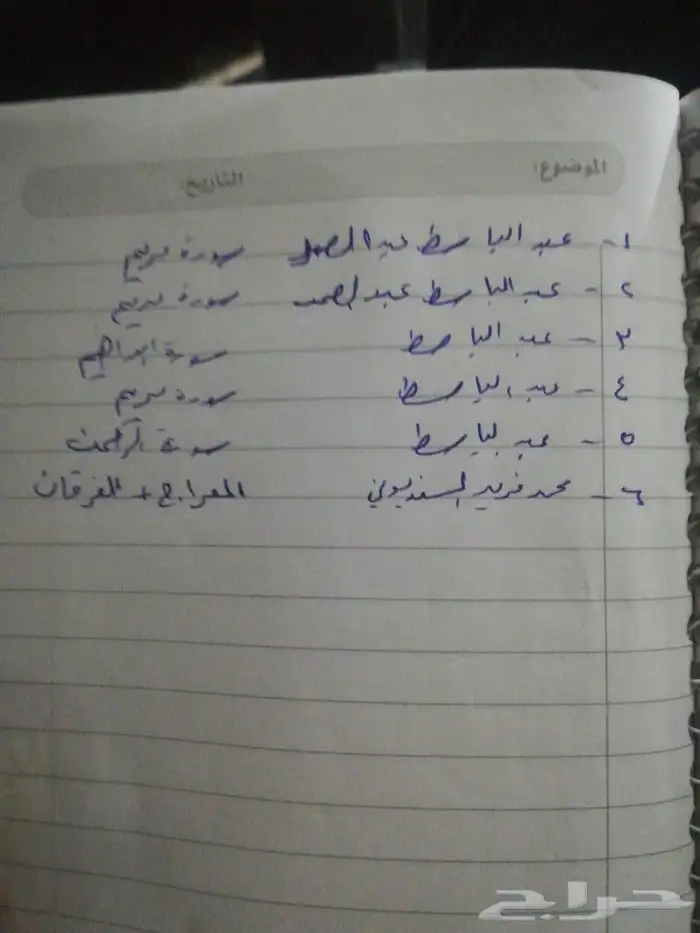 الموضوع: التاريخ:
١- عبد الباسط عبد الصمد سورة مريم
٢- عبد الباسط عبد الصمد سورة مريم
٣- عبد الباسط سورة ابراهيم
٤- عبد الباسط سورة مريم
٥- عبد الباسط سورة الرحمن
٦- محمد فريد السنديوني المعراج + الفرقان
حراج